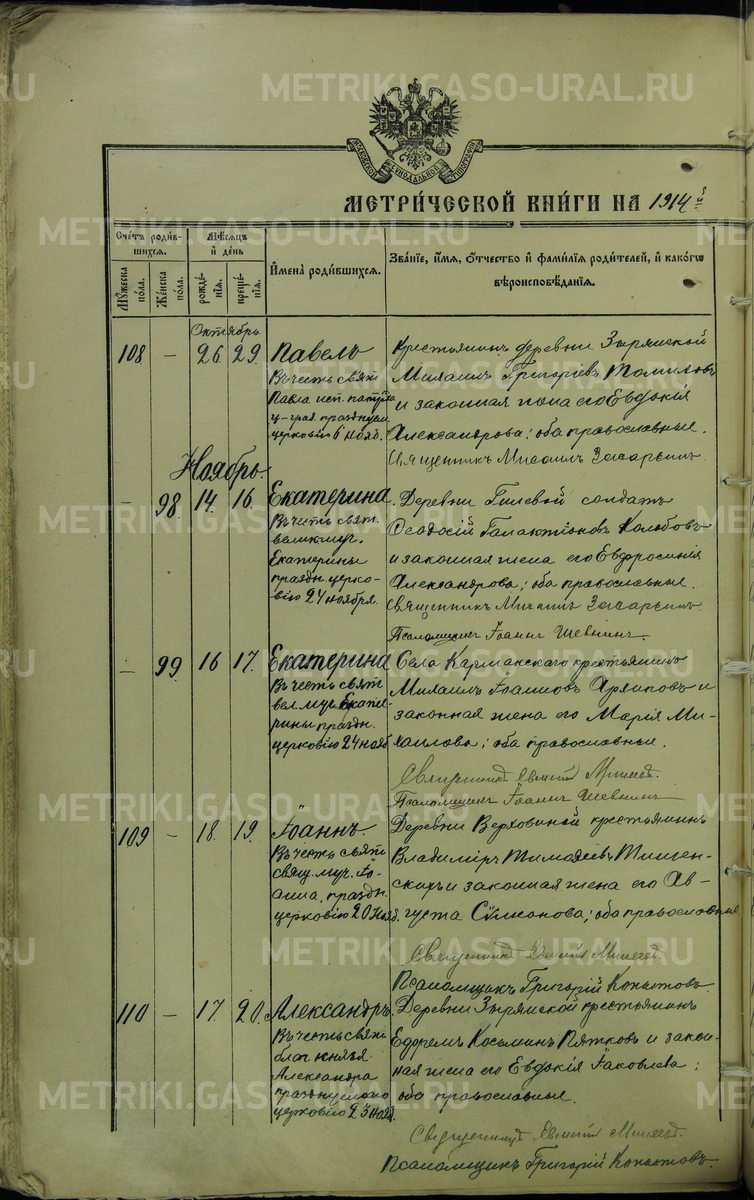 МЕТРИ́ЧЕСКОЙ КНИ́ГИ НА 1914 й
Сче́тъ роди́в-
шихся.
Му́жеска
по́ла.
Же́нска
по́ла.
Мѣ́сяцъ
и́ де́нь
рожде́-
нія.
креще́-
нія.
Имена̀ роди́вшихся.
Зва́ніе, и́мя, о́тчество и́ фами́лія роди́телей, и́ како́гѡ
вѣроисповѣ́данія.
Октябрь.
108 — 26 29 Павелъ
Въ честь свят.
Павла исп. патр.
ц-град. празднуем.
церковію 6 нояб.
Крестьянинъ деревни Зырянской
Михаилъ Григоріевъ Томиловъ
и законная жена его Евдокія
Александрова; оба православные.
Священникъ Михаилъ
Ноябрь.
— 98. 14. 16. Екатерина.
Въ честь свят.
великмуч.
Екатерины
праздн. церко-
вію 24 ноября.
Деревни Гилевой солдатъ
Ѳеодосій Галактіоновъ Колобовъ
и законная жена его Евфросинія
Александрова; оба православные.
Священникъ Михаилъ
Псаломщикъ Іоаннъ Шевнинъ.
— 99 16 17. Екатерина
Въ честь свят.
вел. муч. Екате-
рины праздн.
церковію 24 нояб.
Села Кармакскаго крестьянинъ
Михаилъ Іоанновъ Архиповъ и
законная жена его Марія Ми-
хаилова; оба православные.
Священникъ Евменій Минеев.
Псаломщикъ Іоаннъ Шевнинъ
109 — 18. 19. Іоаннъ.
Въ честь свят.
свящ. муч. Іо-
анна, праздн.
церковію 20 нояб.
Деревни Верховиной крестьянинъ
Владиміръ Тимоѳеевъ Тишен-
скихъ и законная жена его Ав-
густа Сѵмеонова; оба православные
Священникъ Евменій Минеев.
Псаломщикъ Григорій Копытовъ.
110 — 17 20. Александръ.
Въ честь свят.
благ. князя
Александра
празднуемаго
церковію 23 нояб.
Деревни Зырянской крестьянинъ
Ефремъ Косьминъ Пятковъ и закон-
ная жена его Евдокія Іаковлева;
оба православные.
Священникъ Евменій Минеев.
Псаломщикъ Григорій Копытовъ.
METRIKI.GASO-URAL.RU